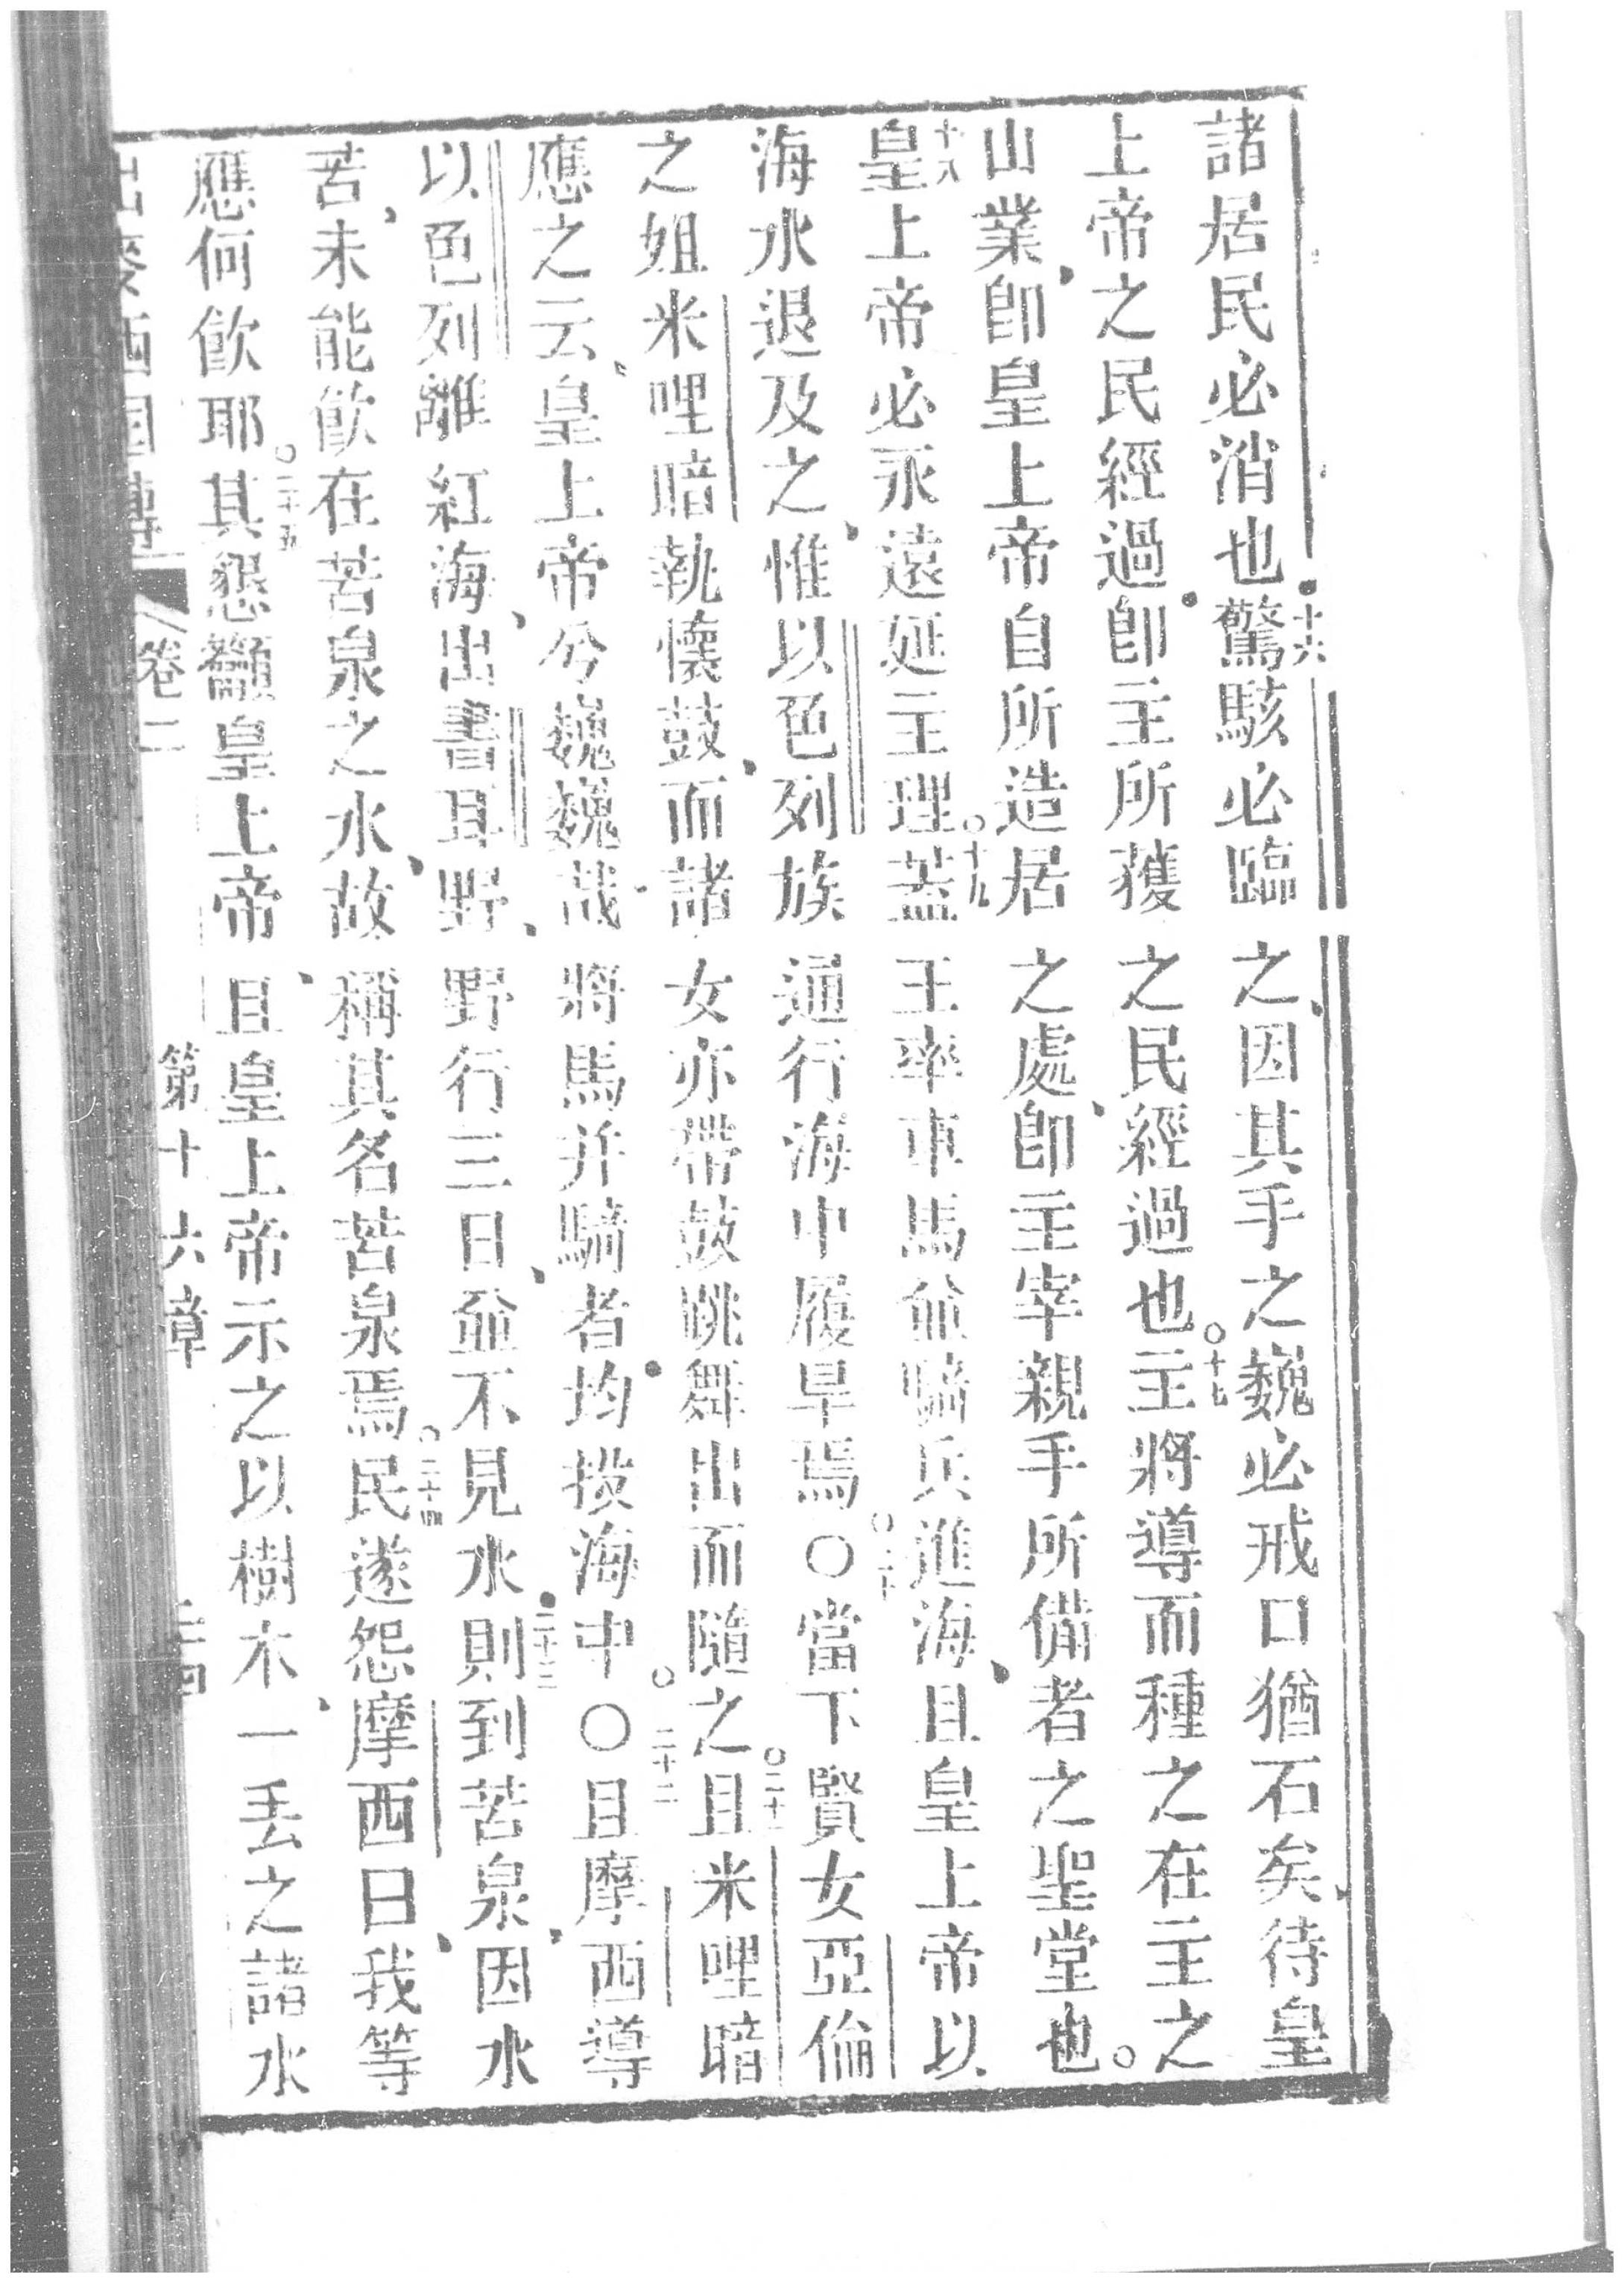 諸居民必消也十六驚駭必臨之因其手之巍必戒口猶石矣待皇
上帝之民經過卽主所獲之民經過也○十七主將導而種之在主之
山業卽皇上帝自所造居之處卽主宰親手所備者之聖堂也○
十八皇上帝必永遠延王理○十九蓋王率車馬並騎兵進海且皇上帝以
海水退及之惟以色列族通行海中履旱焉○二十○當下賢女亞倫
之姐米哩暗執懷鼓而諸女亦帶鼓跳舞出而隨之○二十一且米哩暗
應之云皇上帝兮巍巍哉將馬并騎者均投海中○○二十二且摩西導
以色列離紅海出書耳野野行三日並不見水二十三則到苦泉因水
苦未能飲在苦泉之水故稱其名苦泉焉○二十四民遂怨摩西曰我等
應何飲耶○二十五其懇籲皇上帝且皇上帝示之以樹木一丟之諸水
出麥西國傳 卷二 第十六章 二十四